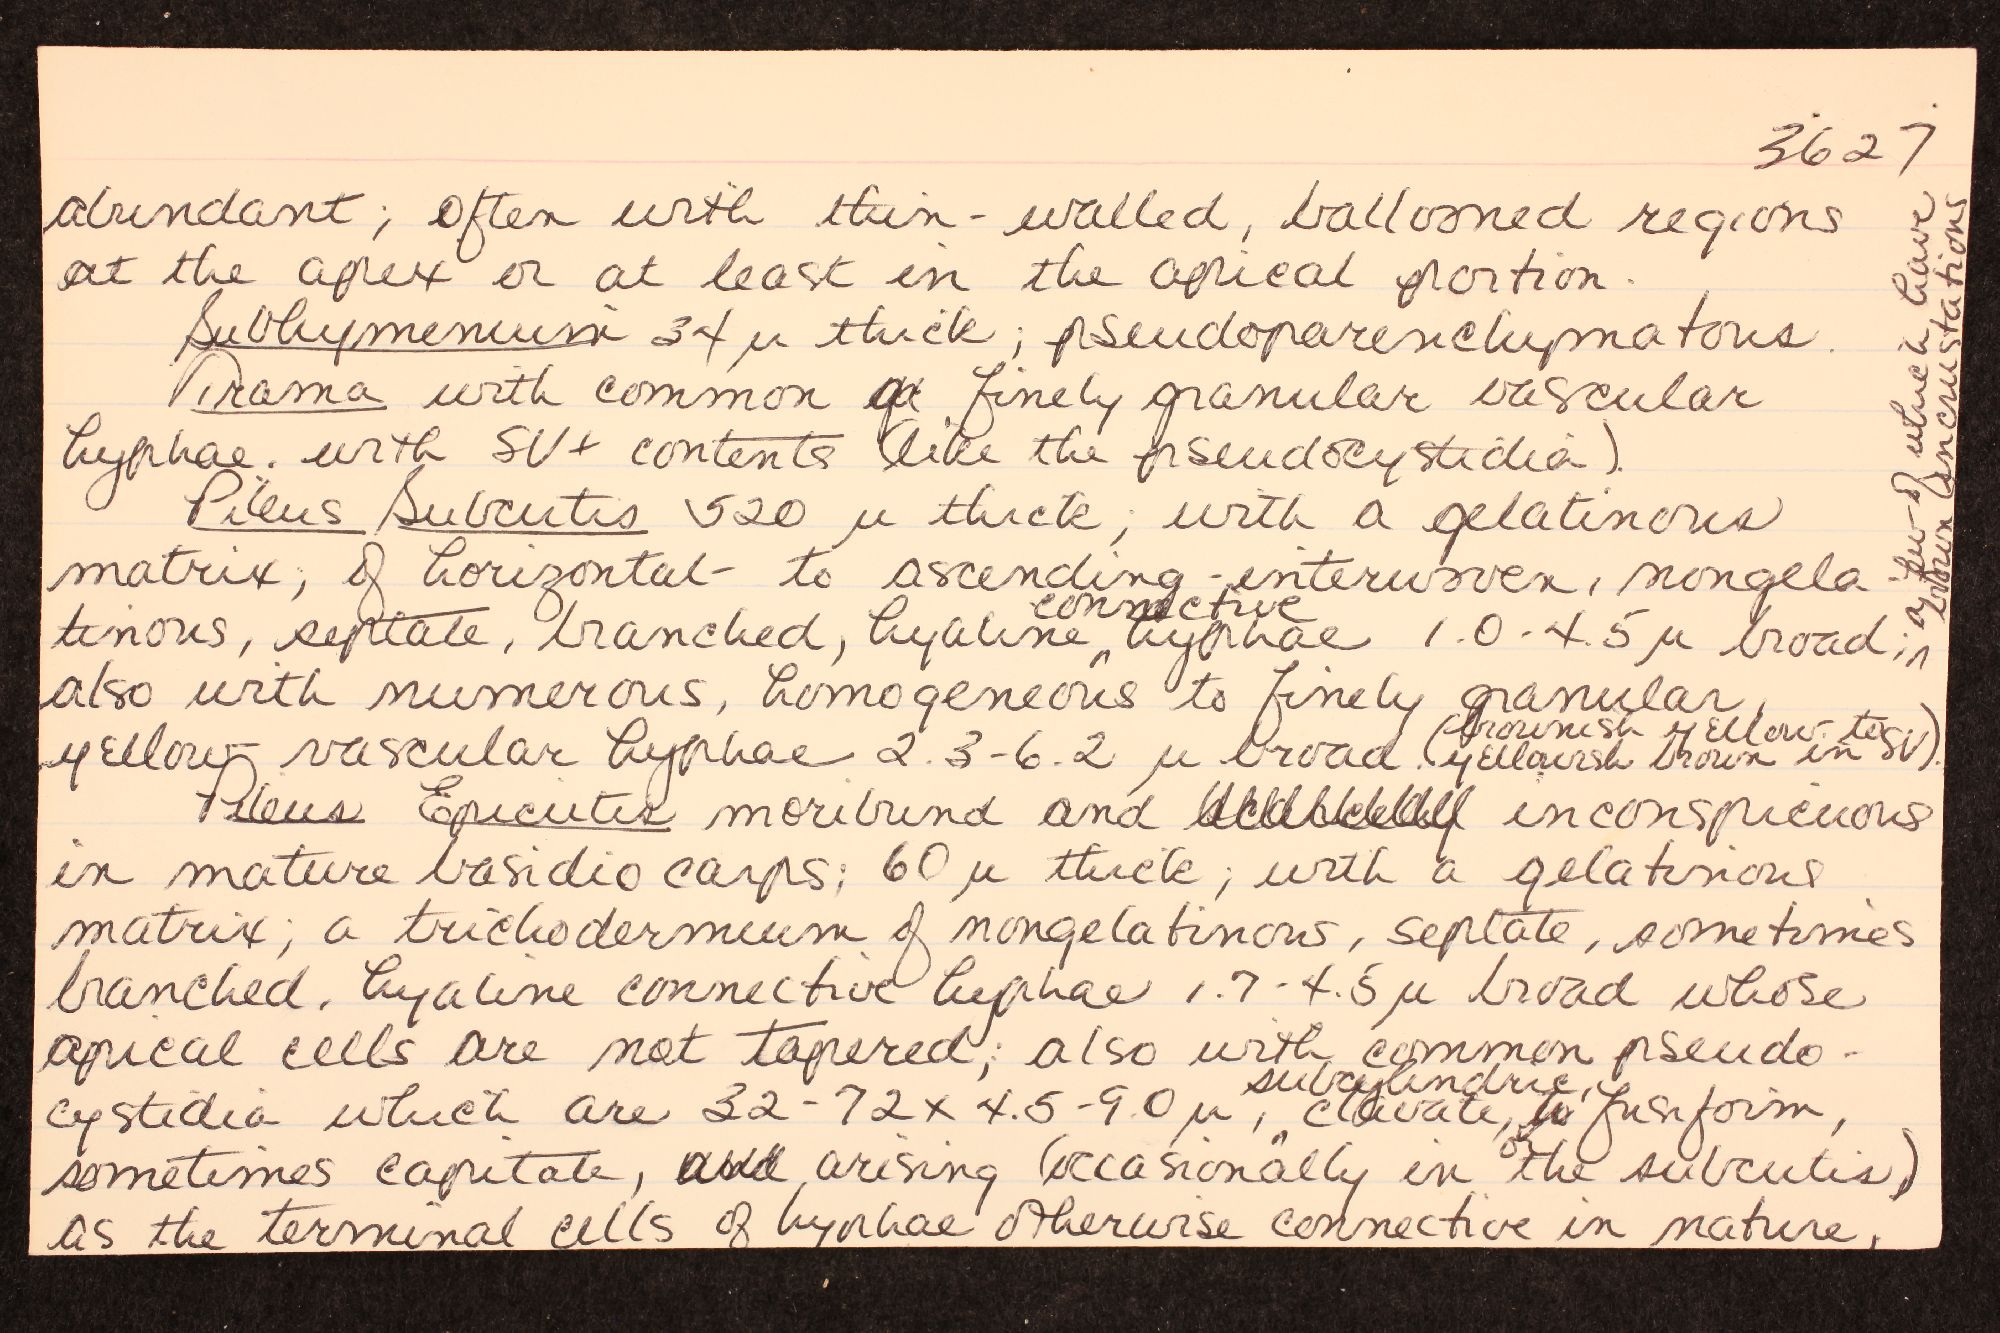 3627
abundant; often with thin-walled, ballooned regions
at the apex or at least in the apical portion.
Subhymenium 34 µ thick; pseudoparenchymatous.
Trama with common finely granular vascular
hyphae. with SV+ contents (like the pseudocystidia).
Pileus Subcutis 520 µ thick; with a gelatinous
matrix; of horizontal- to ascending-interwoven, nongela-
tinous, septate, branched, hyaline connective hyphae 1.0-4.5 µ broad; a few of which have
brown incrustations
also with numerous, homogeneous to finely granular,
yellow vascular hyphae 2.3-6.2 µ broad. (brownish yellow- to
yellowish brown in SV).
Pileus Epicutis moribund and inconspicuous
in mature basidiocarps; 60 µ thick; with a gelatinous
matrix; a trichodermium of nongelatinous, septate, sometimes
branched, hyaline connective hyphae 1.7-4.5 µ broad whose
apical cells are not tapered; also with common pseudo-
cystidia which are 32-72 x 4.5-9.0 µ, subcylindric, clavate, or fusiform,
sometimes capitate, arising (occasionally in the subcutis)
as the terminal cells of hyphae otherwise connective in nature,